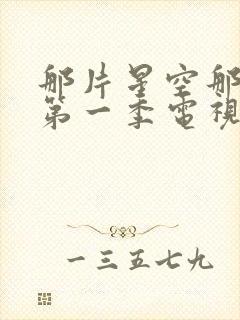 那片星空那
第一季電視
一三五七九